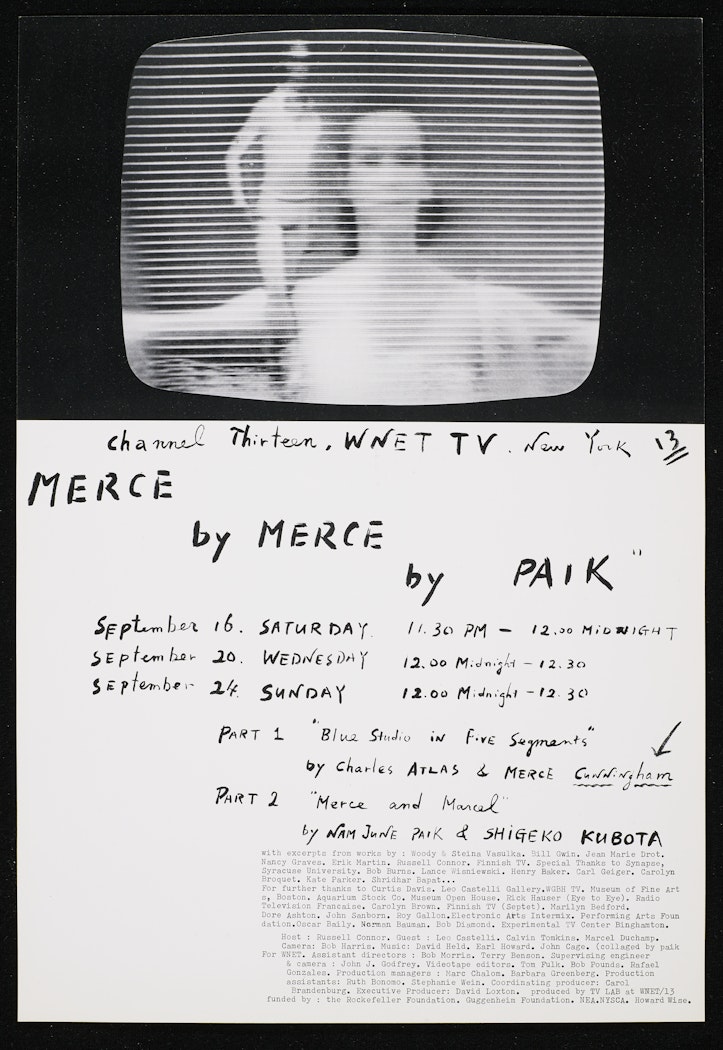 channel Thirteen, WNET TV. New York 13
MERCE
by MERCE
by PAIK"
September 16. SATURDAY. 11.30 PM - 12.00 MIDNIGHT
September 20. WEDNESDAY 12.00 Midnight - 12.30
September 24. SUNDAY 12.00 Midnight - 12.30
PART 1 "Blue Studio in Five Segments"
by Charles ATLAS & MERCE Cunningham
PART 2 "Merce and Marcel"
by NAM JUNE PAIK & SHIGEKO KUBOTA
with excerpts from works by : Woody & Steina Vasulka. Bill Gwin. Jean Marie Drot.
Nancy Graves. Erik Martin. Russell Connor. Finnish TV. Special Thanks to Synapse,
Syracuse University. Bob Burns. Lance Wisniewski. Henry Baker. Carl Geiger. Carolyn
Broquet. Kate Parker. Shridhar Bapat...
For further thanks to Curtis Davis. Leo Castelli Gallery.WGBH TV. Museum of Fine Art
s, Boston. Aquarium Stock Co. Museum Open House. Rick Hauser (Eye to Eye). Radio
Television Francaise. Carolyn Brown. Finnish TV (Septet). Marilyn Bedford.
Dore Ashton. John Sanborn. Roy Gallon.Electronic Arts Intermix. Performing Arts Foun
dation.Oscar Baily. Norman Bauman. Bob Diamond. Experimental TV Center Binghamton.
Host : Russell Connor. Guest : Leo Castelli. Calvin Tomkins. Marcel Duchamp.
Camera: Bob Harris. Music: David Held. Earl Howard. John Cage. (collaged by paik
For WNET. Assistant directors : Bob Morris. Terry Benson. Supervising engineer
& camera : John J. Godfrey. Videotape editors. Tom Fulk. Bob Pounds. Rafael
Gonzales. Production managers : Marc Chalom. Barbara Greenberg. Production
assistants: Ruth Bonomo. Stephanie Wein. Coordinating producer: Carol
Brandenburg. Executive Producer: David Loxton. produced by TV LAB at WNET/13
funded by : the Rockefeller Foundation. Guggenheim Foundation. NEA.NYSCA. Howard Wise.